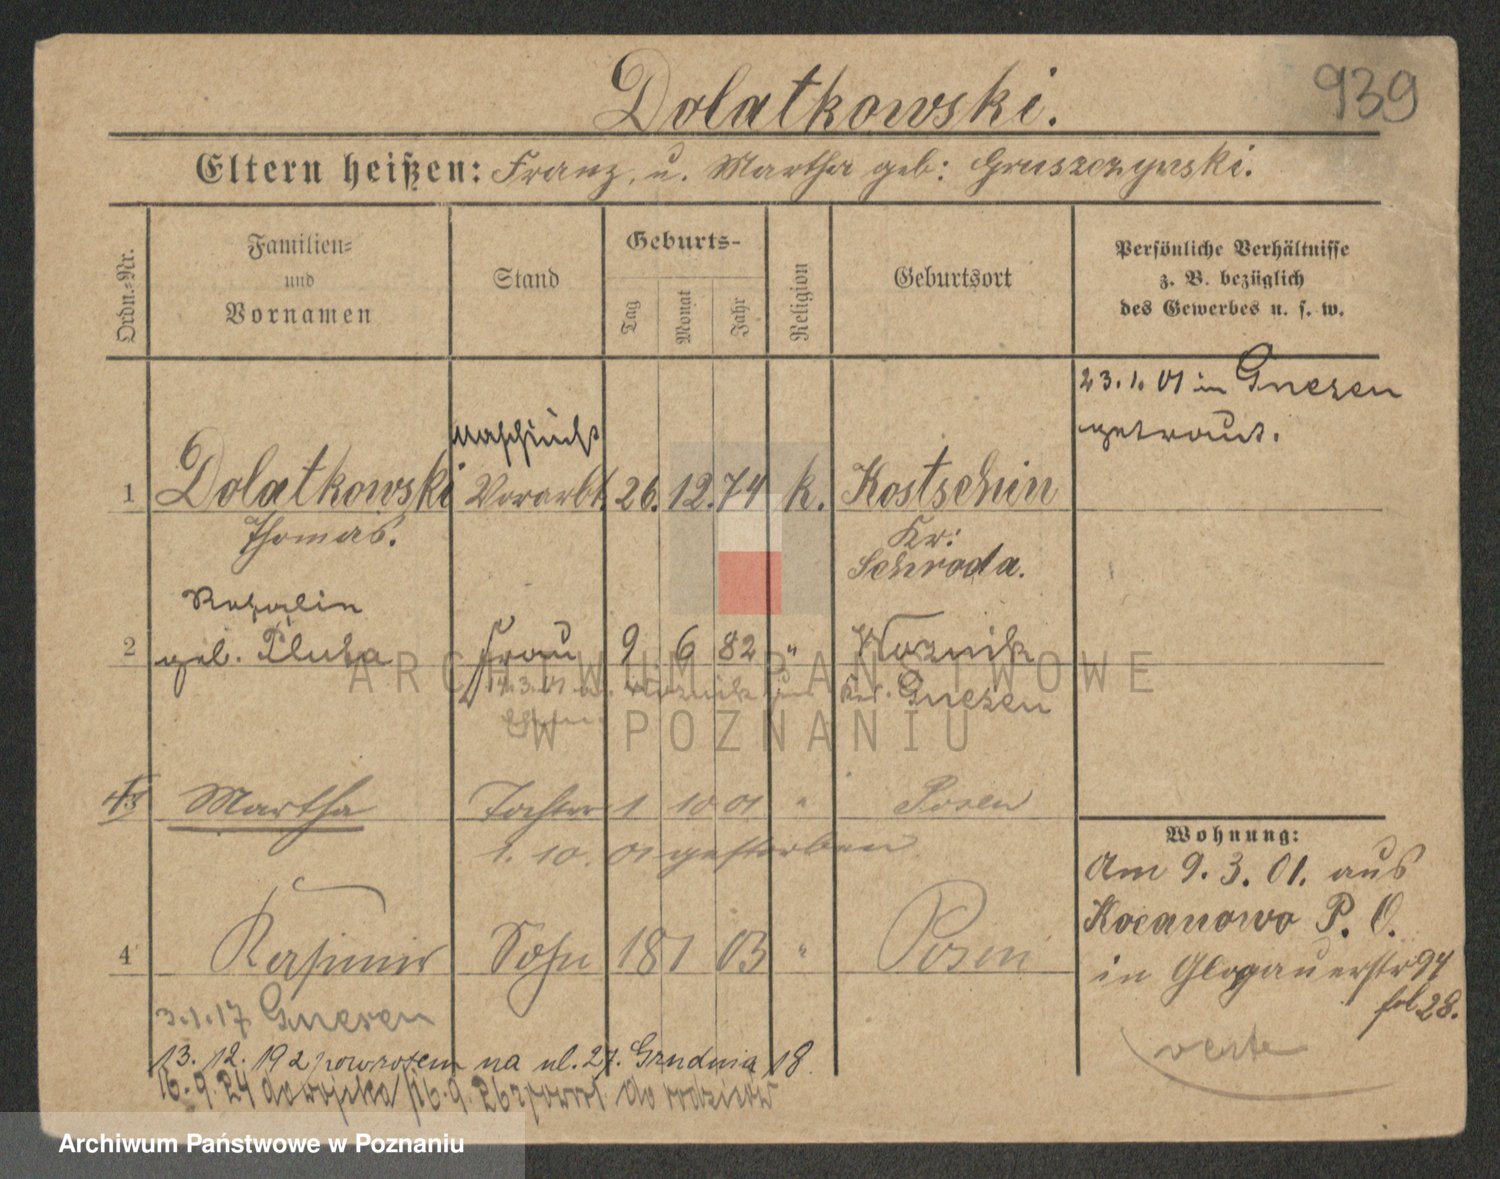 939
Dolatkowski.
Eltern heißen: Franz, u. Martha geb: Gruszczynski.
Ordn.-Nr.
Familien-
und
Vornamen
Stand
Geburts-
Tag
Monat
Jahr
Religion
Geburtsort
Persönliche Verhältnisse
z. B. bezüglich
des Gewerbes u. s. w.
23. 1. 01 in Gnesen
getraut.
1 Dolatkowski Vorarbt. 26. 12. 74 k. Kostschin
Thomas.
Kr:
Schroda.
Rosalin
2 geb. Pluta Frau 9 6 82 " Woznik
Kr. Gnesen
3 Martha Tochter 1 10 01 " Posen
1. 10. 01 gestorben
4 Kasimir Sohn 18 1 03 " Posen
3.1.17 Gnesen
13. 12. 192 powrotem na ul. 27. Grudnia 18.
16. 9. 24 do wojska 16. 9. 26 z powrt. do rodziców
Wohnung:
Am 9. 3. 01. aus
Kocanowo P. O.
in Glogauerstr 94
fol 28.
verte
ARCHIWUM PAŃSTWOWE
W POZNANIU
Archiwum Państwowe w Poznaniu